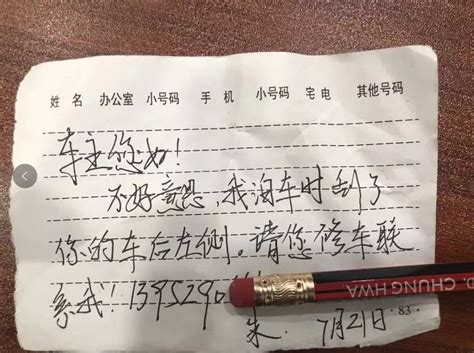 姓名 办公室 小号码 手机 小号码 宅电 其他号码
车主您好!
不好意思,我淘车时刮了
你的车后左侧。请您修车联
系我!1395290
朱. 7月21日
CHUNG HWA
·83·